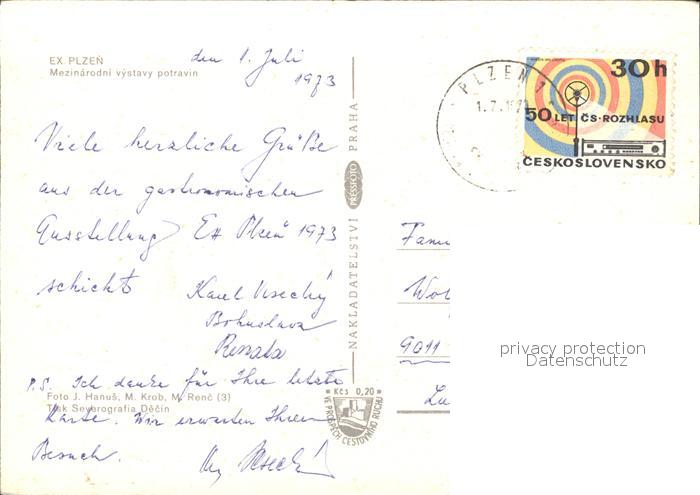 EX. PLZEŇ
Mezinárodní výstavy potravin
den 1. Juli
1973
Viele herzliche Grüße
aus der gastronomischen
Ausstellung Ex Plzeň 1973
schickt
Karel Vesecký
Bohuslava
Renata
P.S. Ich danke für Ihre letzte
Karte. Wir erwarten Ihren
Besuch.
Foto J. Hanuš, M. Krob, M. Renč (3)
Tisk Severografia Děčín
NAKLADATELSTVÍ PRESSFOTO PRAHA
Kčs 0,20
VE PROSPĚCH CESTOVNÍHO RUCHU
PLZEŇ 1
1.7.
30h
50 LET ČS·ROZHLASU
ČESKOSLOVENSKO
Fam
Wol
9011
Lu
privacy protection
Datenschutz